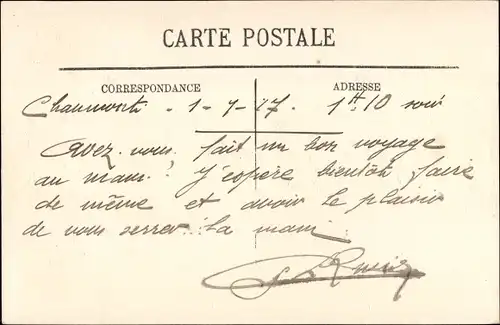 CARTE POSTALE
CORRESPONDANCE ADRESSE
Chaumont - 1-7-17. 1H 10 soir
Avez-vous fait un bon voyage
au mans? J'espère bientôt faire
de même et avoir le plaisir
de vous serrer la main